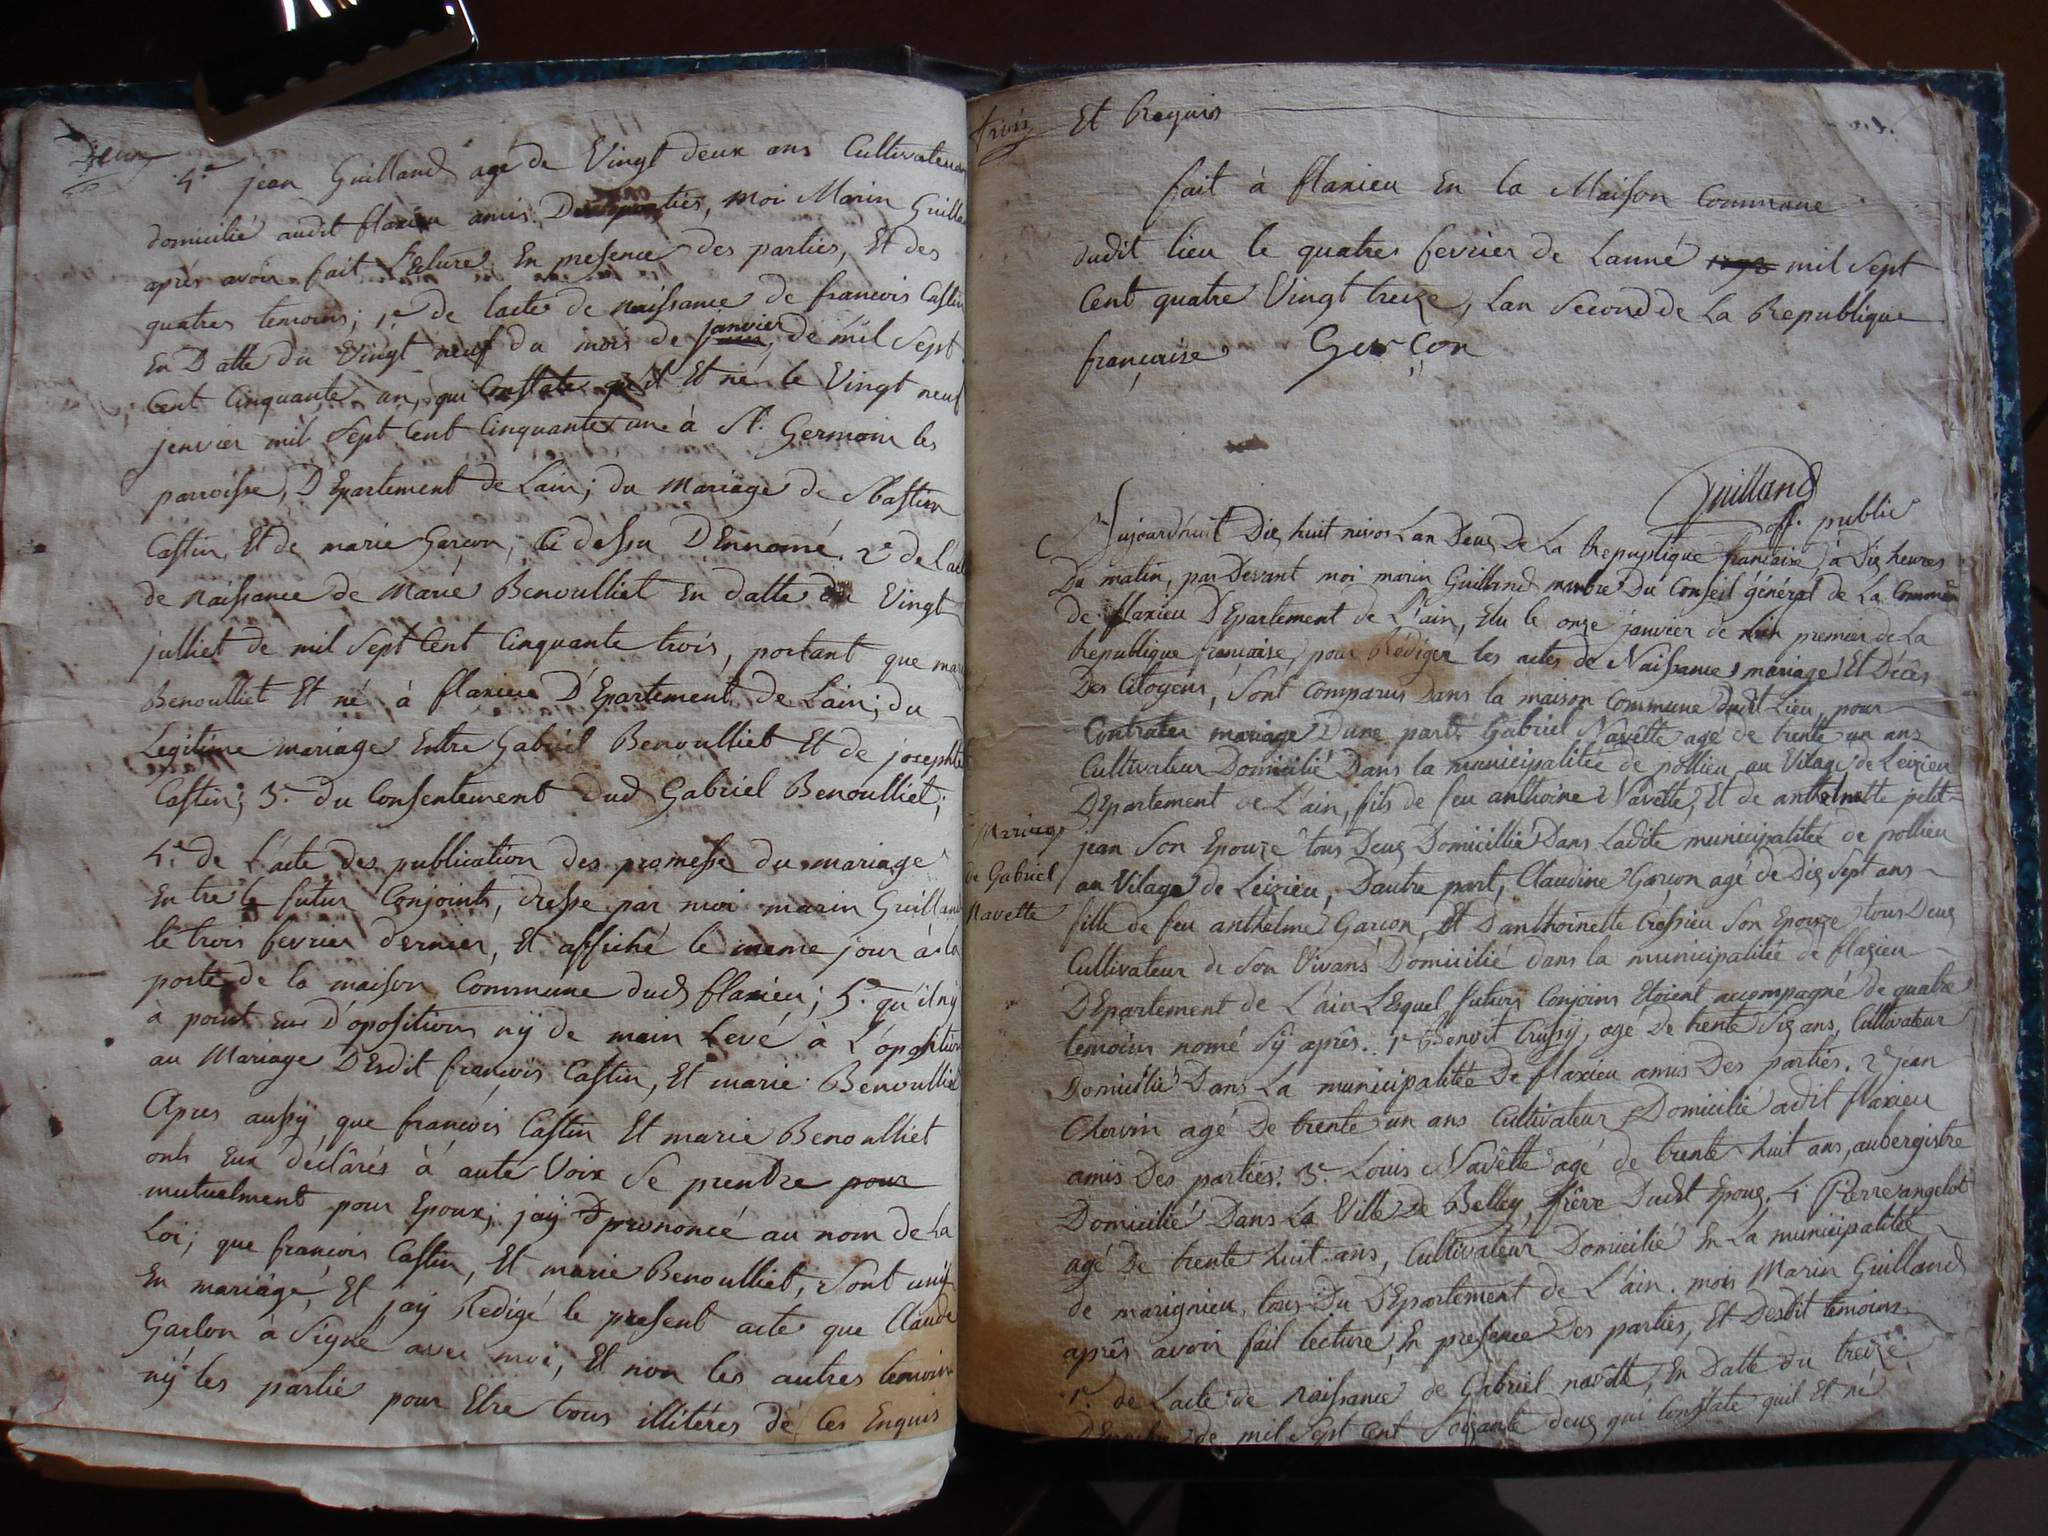 Deux
4.e jean Guilland agé de Vingt deux ans Cultivateur
domicilié audit flaxieu amis Des parties, moi Marin Guilland
aprés avoir fait Lecture En presence des parties, Et des
quatres temoins; 1.e de lacte de naissance de francois Castin
En Datte du Vingt neuf du mois de janvier, de mil Sept
Cent Cinquante un, qui Constate qu'il Et né le Vingt neuf
jenvier mil Sept Cent Cinquante une à St. Germain les
parroisse, D'Epartement de Lain; du Mariage de Sbastien
Castin, Et de marie Garcon, Ci dessu D'Ennomé. 2.e de l'acte
de Naissance de Marie Benoulliet En datte du Vingt
julliet de mil Sept Cent Cinquante trois, portant que marie
Benoulliet Et né à flaxieu D'Epartement de Lain; du
Legitime mariage Entre Gabriel Benoulliet Et de josephte
Castin; 3.e du Consentement dud Gabriel Benoulliet;
4.e de L'acte des publication des promesse du mariage
Entre le futur Conjoints, dresse par moi marin Guilland
le trois fevrier dernier, Et affiché le meme jour à la
porte de la maison Commune dud flaxieu; 5.e qu'il n'y
à point Eue D'opositions nÿ de main Levé à L'oposition
au Mariage Desdit françois Castin, Et marie Benoulliet
Apres aussy que francois Castin Et marie Benoulliet
onts Eux déclarés à aute Voix Se prendre pour
mutuelment pour Epoux; jaÿ prononcé au nom de La
Loi; que françois Castin, Et marie Benoulliet, Sont unis
En mariage, Et jaÿ Redigé le present acte que Claude
Garçon à Signé avec moi, Et non les autres temoins
nÿ les partie pour Etre tous illitéres de Ces Enquis
trois
Et Requis
fait à flaxieu En la Maison Commune
dudit lieu le quatre fevrier de Lanné mil Sept
Cent quatre Vingt treize, Lan Second de La Republique
française Garçon
Guilland
off. public
Aujourd'huit Dix huit nivos Lan Deux De La Republique francaise, à Dix heures
Du matin, par Devant moi marin Guilland manbre Du Conseil général de La Commune
de flaxieu D'Epartement de L'ain, Elu le onze janvier de premier de La
Republique francaise, pour Rédiger les actes de Naissance, mariage, Et Décès
Des Citoyens, Sont Comparus Dans la maison Commune dudit Lieu, pour
Contracter mariage D'une part Gabriel Navêtte agé de trente un ans
Cultivateur Domicilié Dans la municipalitée de pollieu au Vilage de Leizieu
D'Epartement de L'ain, fils de feu anthoine Navêtte, Et de anthelmette petit
jean Son Epouze tous Deux Domicillié Dans Ladite municipalitée de pollieu
au Vilage de Leizieu, Dautre part, Claudine Garcon agé de Dix Sept ans
fille de feu anthelme Garcon, Et Danthoinette Cressieu Son Epouze tous Deux
Cultivateur de Son Vivans Domicilié dans la municipalitée de flaxieu
D'Epartement de L'ain Lesquel futurs Conjoins Etoient accompagné de quatre
temoins nomé Sÿ après. 1.e Benoit Crussy, agé De trente Six ans, Cultivateur
Domicilié Dans La municipalitée De flaxieu amis Des parties. 2.e jean
Chouvin agé De trente un ans Cultivateur Domicilié adit flaxieu
amis Des parties. 3.e Louis Navêtte agé de trente huit ans, aubergistre
Domicilié Dans La Ville de Belley, frère Dudit Epoux. 4.e Pierre angelot
agé De trente huit ans, Cultivateur Domicilié En La municipalitée
de marignieu, tous Du D'Epartement de L'ain. mois Marin Guilland
après avoir fait lecture, En presence Des parties, Et Desdit temoins
1.e de Lacte de Naissance de Gabriel navêtte, En Datte du treize
de mil Sept Cent Soixante deux qui Constate quil Et né
Mariage
de Gabriel
Navette